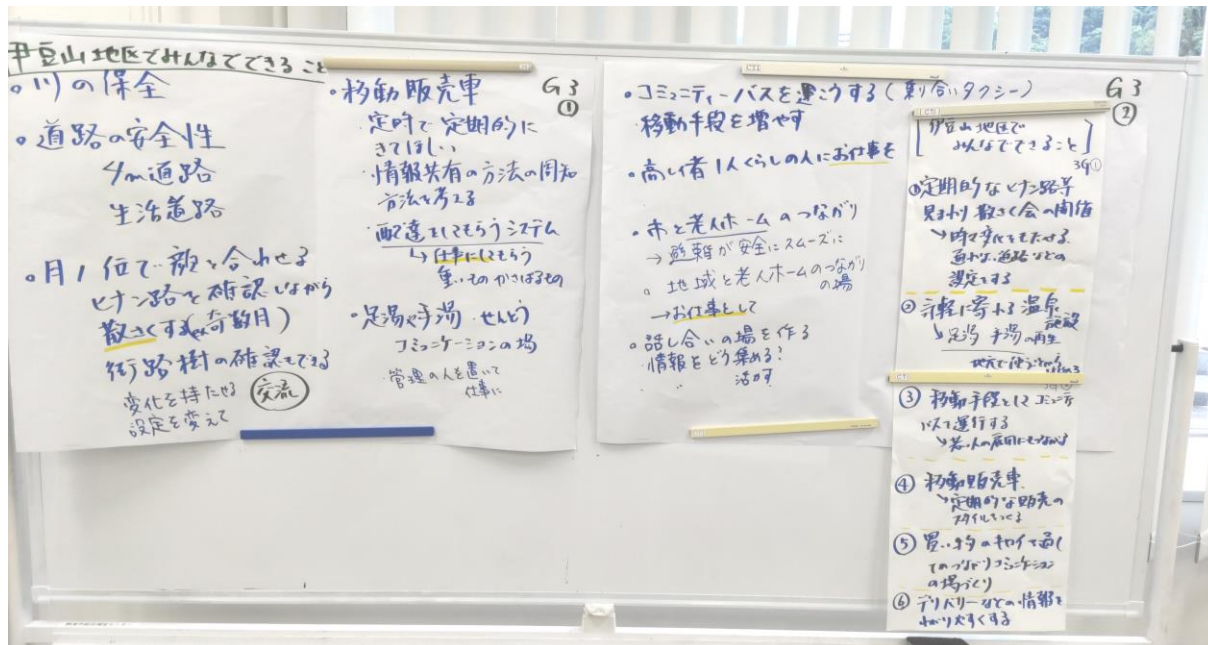 伊豆山地区でみんなでできること
。川の保全
。道路の安全性
4m道路
生活道路
。月1位で顔を合わせる
ヒナン路を確認しながら
散さくする(奇数月)
街路樹の確認もできる
変化を持たせる
設定を変えて
交流
G3
①
・移動販売車
定時で定期的に
きてほしい
・情報共有の方法の周知
方法を考える
配達をしてもらうシステム
↳仕事にしてもらう
重いものかさばるもの
・足湯や手湯 せんとう
コミュニケーションの場
・管理の人を置いて
仕事に
G3
②
・コミュニティーバスを
(乗り合いタクシー)
移動手段を増やす
・高れい者1人くらしの人にお仕事を
・市と老人ホームのつながり
→避難が安全にスムーズに
。地域と老人ホームのつながり
の場
→お仕事として
。話し合いの場を作る
・情報をどう集める?
・〃 活かす
伊豆山地区で
みんなでできること
3G①
①定期的なヒナン路等
見まわり散さく会の開催
↳時々変化をもたせる
道路などの
設定をする
②気軽に寄れる温泉
施設
↳足湯 手湯の再生
③移動手段としてコミュニティ
バスを運行する
↳老人の雇用にもつながる
④移動販売車
↳定期的な販売の
スタイルをつくる
⑤買い物
てのつながりコミュニケーション
の場づくり
⑥デリバリーなどの情報を
わかりやすくする